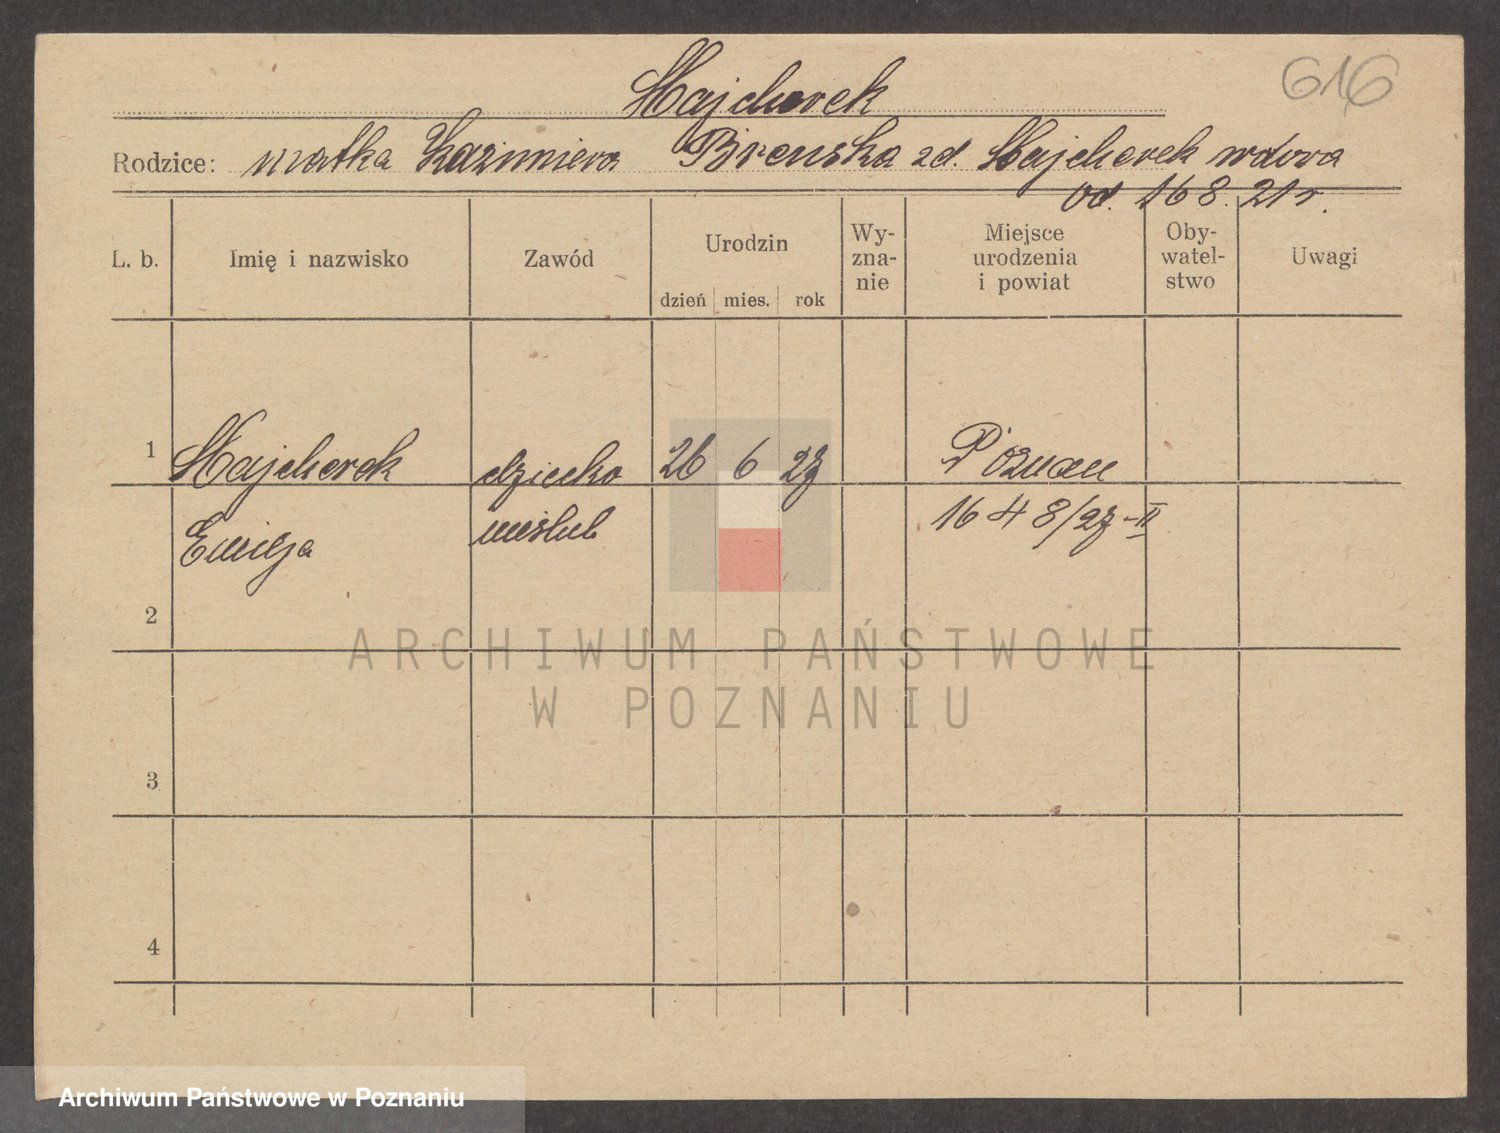 616
Majcherek
Rodzice: matka Kazimiera Brenska zd. Majcherek wdowa
od. 16 8. 21 r.
L. b. Imię i nazwisko Zawód Urodzin Wy-zna-nie Miejsce urodzenia i powiat Oby-watel-stwo Uwagi
dzień mies. rok
1 Majcherek dziecko 26 6 27 Poznań
Emilja nieślub 1648/27-II
2
3
4
ARCHIWUM PAŃSTWOWE
W POZNANIU
Archiwum Państwowe w Poznaniu